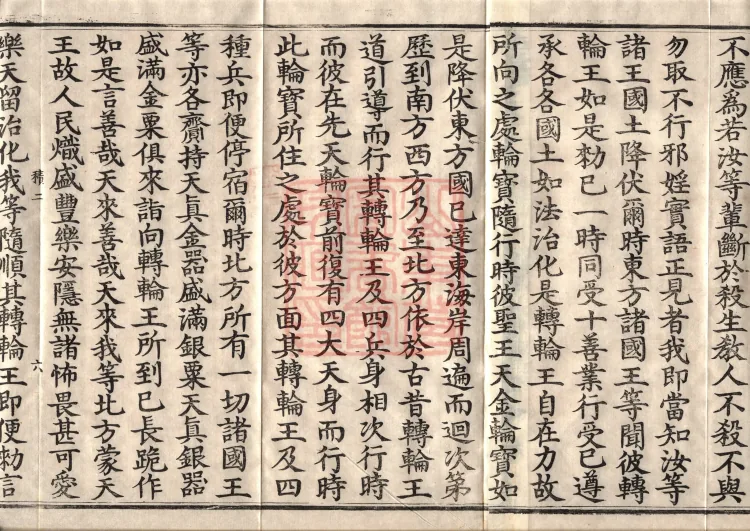 不應為若汝等輩斷於殺生教人不殺不與
勿取不行邪婬實語正見者我即當知汝等
諸王國土降伏爾時東方諸國王等聞彼轉
輪王如是勑已一時同受十善業行受已遵
承各各國土如法治化是轉輪王自在力故
所向之處輪寶隨行時彼聖王天金輪寶如
是降伏東方國已達東海岸周遍而迴次第
歷到南方西方乃至北方依於古昔轉輪王
道引導而行其轉輪王及四兵身相次行時
而彼在先天輪寶前復有四大天身而行時
此輪寶所住之處於彼方面其轉輪王及四
種兵即便停宿爾時北方所有一切諸國王
等亦各齎持天真金器盛滿銀粟天真銀器
盛滿金粟俱來詣向轉輪王所到已長跪作
如是言善哉天來善哉天來我等北方蒙天
王故人民熾盛豐樂安隱無諸怖畏甚可愛
樂天留治化我等隨順其轉輪王即便勑言
六